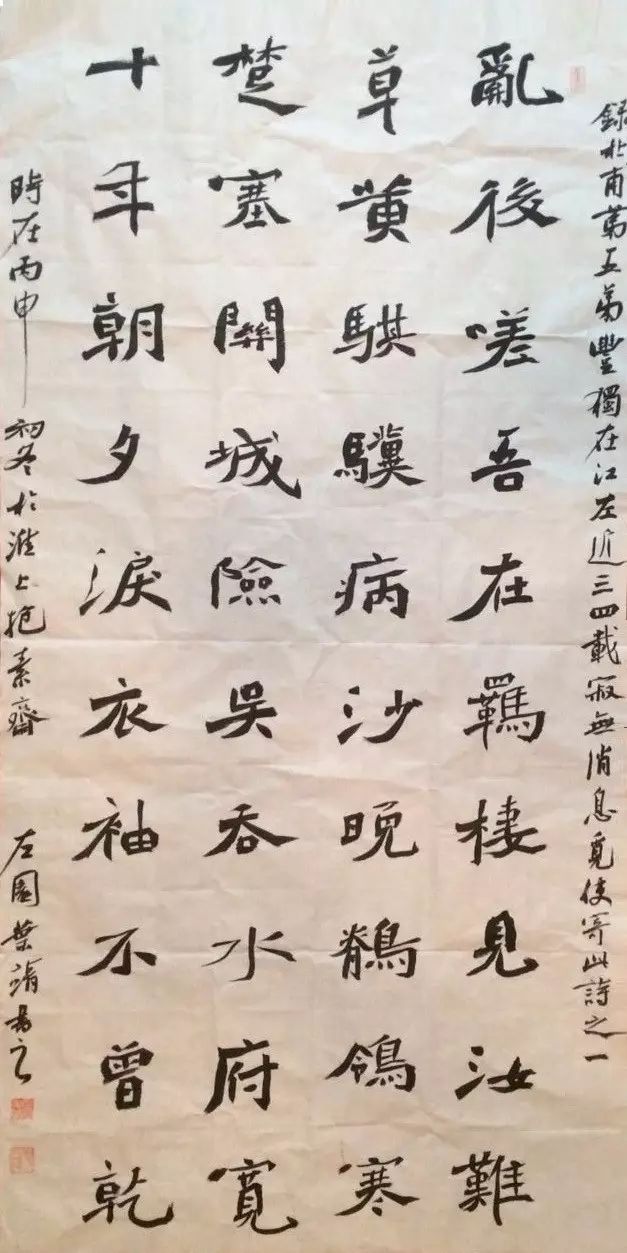 錄杜甫第五弟豐獨在江左近三四載寂無消息覓使寄此詩之一
亂後嗟吾在羈棲見汝難
草黃騏驥病沙晚鶺鴒寒
楚塞關城險吳吞水府寬
十年朝夕淚衣袖不曾乾
時在丙申初冬於淮上抱素齋左園葉靖書之